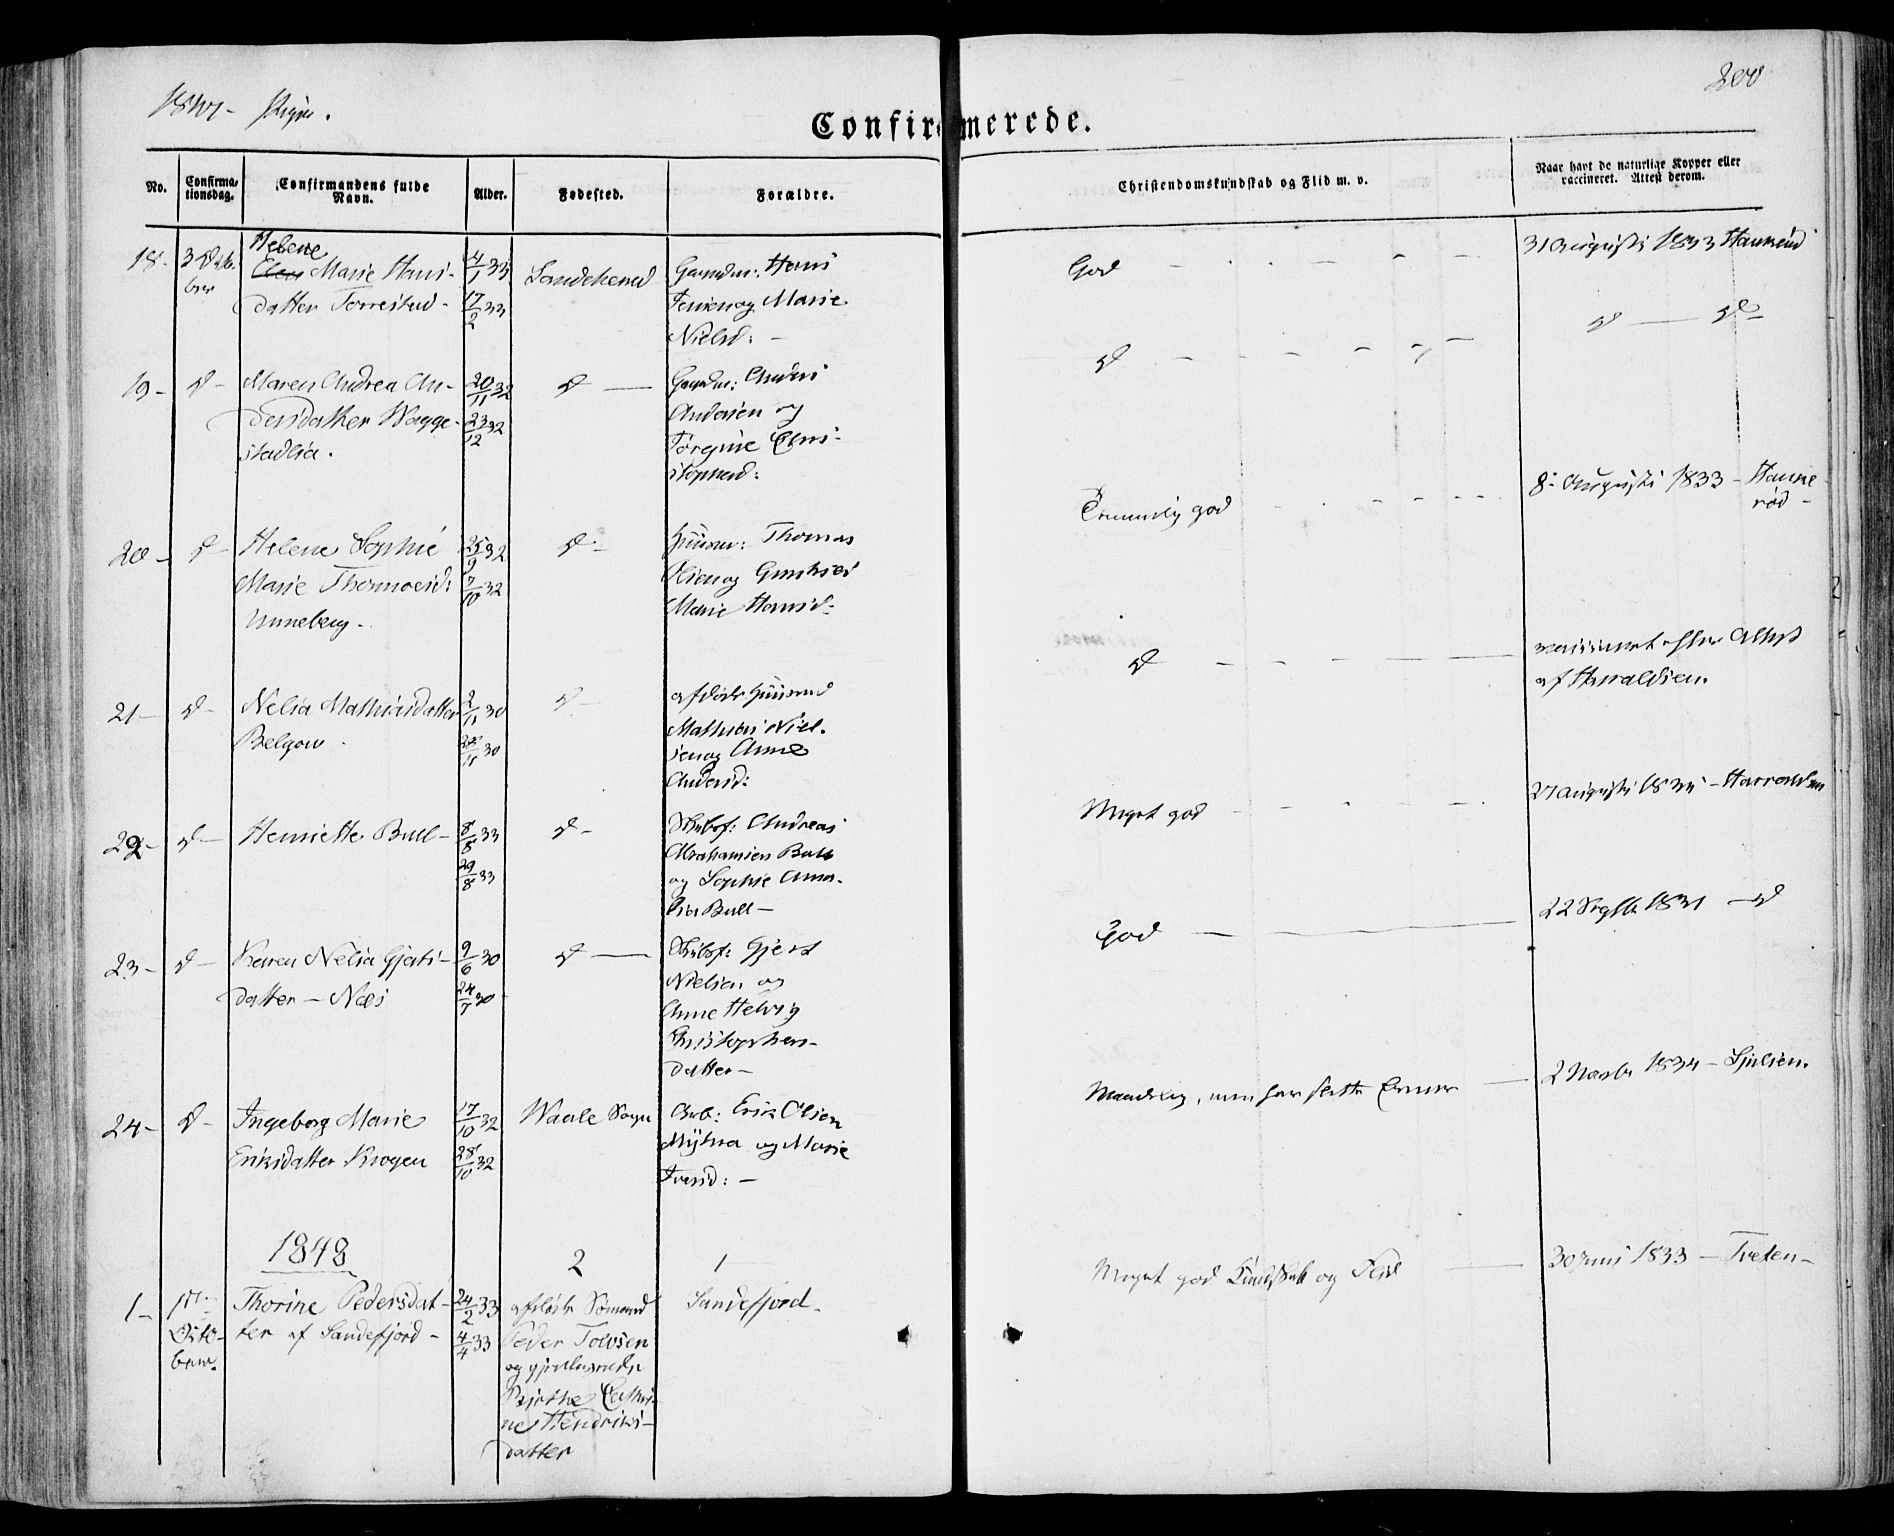 1847 - Piger.
200
Confirmerede.
No.
Confirma-
tionsdag.
Confirmandens fulde
Navn.
Alder.
Fødested.
Forældre.
Christendomskundskab og Flid m. v.
Naar havt de naturlige Kopper eller
vaccineret. Attest derom.
18-
3 Octo-
ber
Helene
Marie Hans-
datter Torrestad -
4/1 33
17/2 33
Sandeherred
Gaardm: Hans
Jensen og Marie
Nielsd: -
God
31 Augusti 1833
19-
d -
Maren Andrea An-
dersdatter Wagge-
stadlia.
20/11 32
23/12 32
d -
Gaardm: Anders
Andersen og
Torgine Chri-
stophersd:
d
d - d -
20 -
d -
Helene Sophie
Marie Thomæsd:
Unneberg -
25/9 32
7/10 32
d -
Huusm: Thomas
Olsen og
Marie Hansd:
Temmelig god
8 Augusti 1833 - Hauke-
rød -
21 -
d -
Nelia Mathiasdatter
Belgau
2/11 30
28/11 30
d -
afdøde Huusmd
Mathias Niel-
sen og Anne
Andersd:
d
vaccineret efter Attest
af Haraldsen.
22 -
d -
Henriette Bull -
8/8 33
29/8 33
d -
Skibsf: Andreas
Abrahamsen Bull
og Sophie Ama-
lia Bull -
Meget god
27 Augusti - Harraldsen
23 -
d -
Karen Nelia Gjerts-
datter - Næs
9/6 30
24/7 30
d -
Skibsf: Gjert
Nielsen og
Anne Helvig
Christophers-
datter -
God
22 Septbr 1831 - d
24 -
d -
Ingeborg Marie
Eriksdatter Krogen
17/10 32
28/10 32
Waale Sogn
Arb: Erik Olsen
Myhra og Marie
Iversd: -
Maadelig, men har slette Evner
2 Novbr 1834 - Sjulsen.
1848
2
1
1 -
1st
Octo-
ber.
Thorine Pedersdat-
ter af Sandefjord -
24/2 33
4/4 33
afdøde Sømand
Peder Tolvsen
og
Birthe Cathri-
ne Hendriks-
datter
Sandefjord -
Meget god Kundskab og Flid
30 Juni 1833 - Tveten -